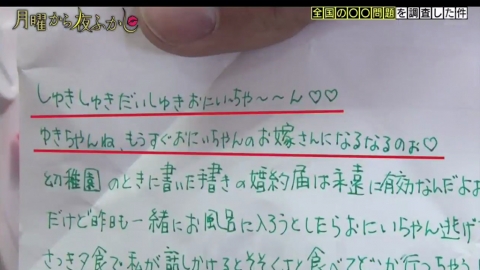 月曜から夜ふかし
全国の〇〇問題を調査した件
しゅきしゅきだいしゅきおにいちゃ〜〜ん♡♡
ゆきちゃんね、もうすぐおにいちゃんのお嫁さんになるなるのぉ♡
幼稚園のときに書いた手書きの婚約届は永遠に有効なんだよぉ
だけど昨日も一緒にお風呂に入ろうとしたらおにいちゃん逃げ
さっき夕食で私が話しかけるとそそくさと食べ